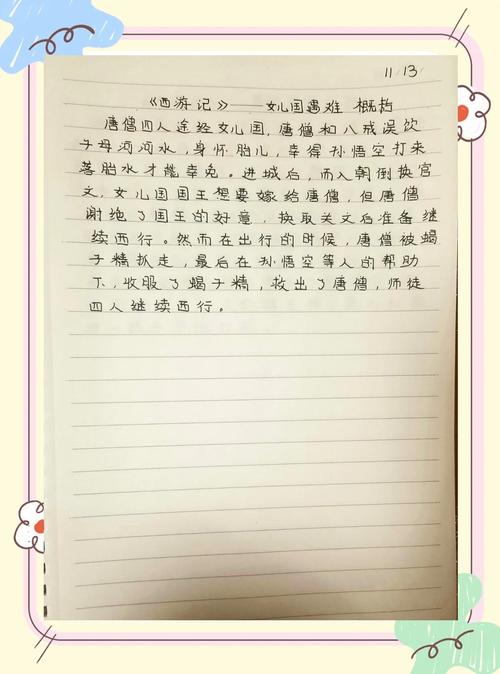 11/13
《西游记》——女儿国遇难 概括
唐僧四人途经女儿国,唐僧和八戒误饮
子母河河水,身怀胎儿,幸得孙悟空打来
落胎水才能幸免。进城后,而入朝倒换宫
文,女儿国国王想要嫁给唐僧,但唐僧
谢绝了国王的好意,换取关文后准备继
续西行。然而在出行的时候,唐僧被蝎
子精抓走,最后在孙悟空等人的帮助
下,收服了蝎子精,救出了唐僧,师徒
四人继续西行。